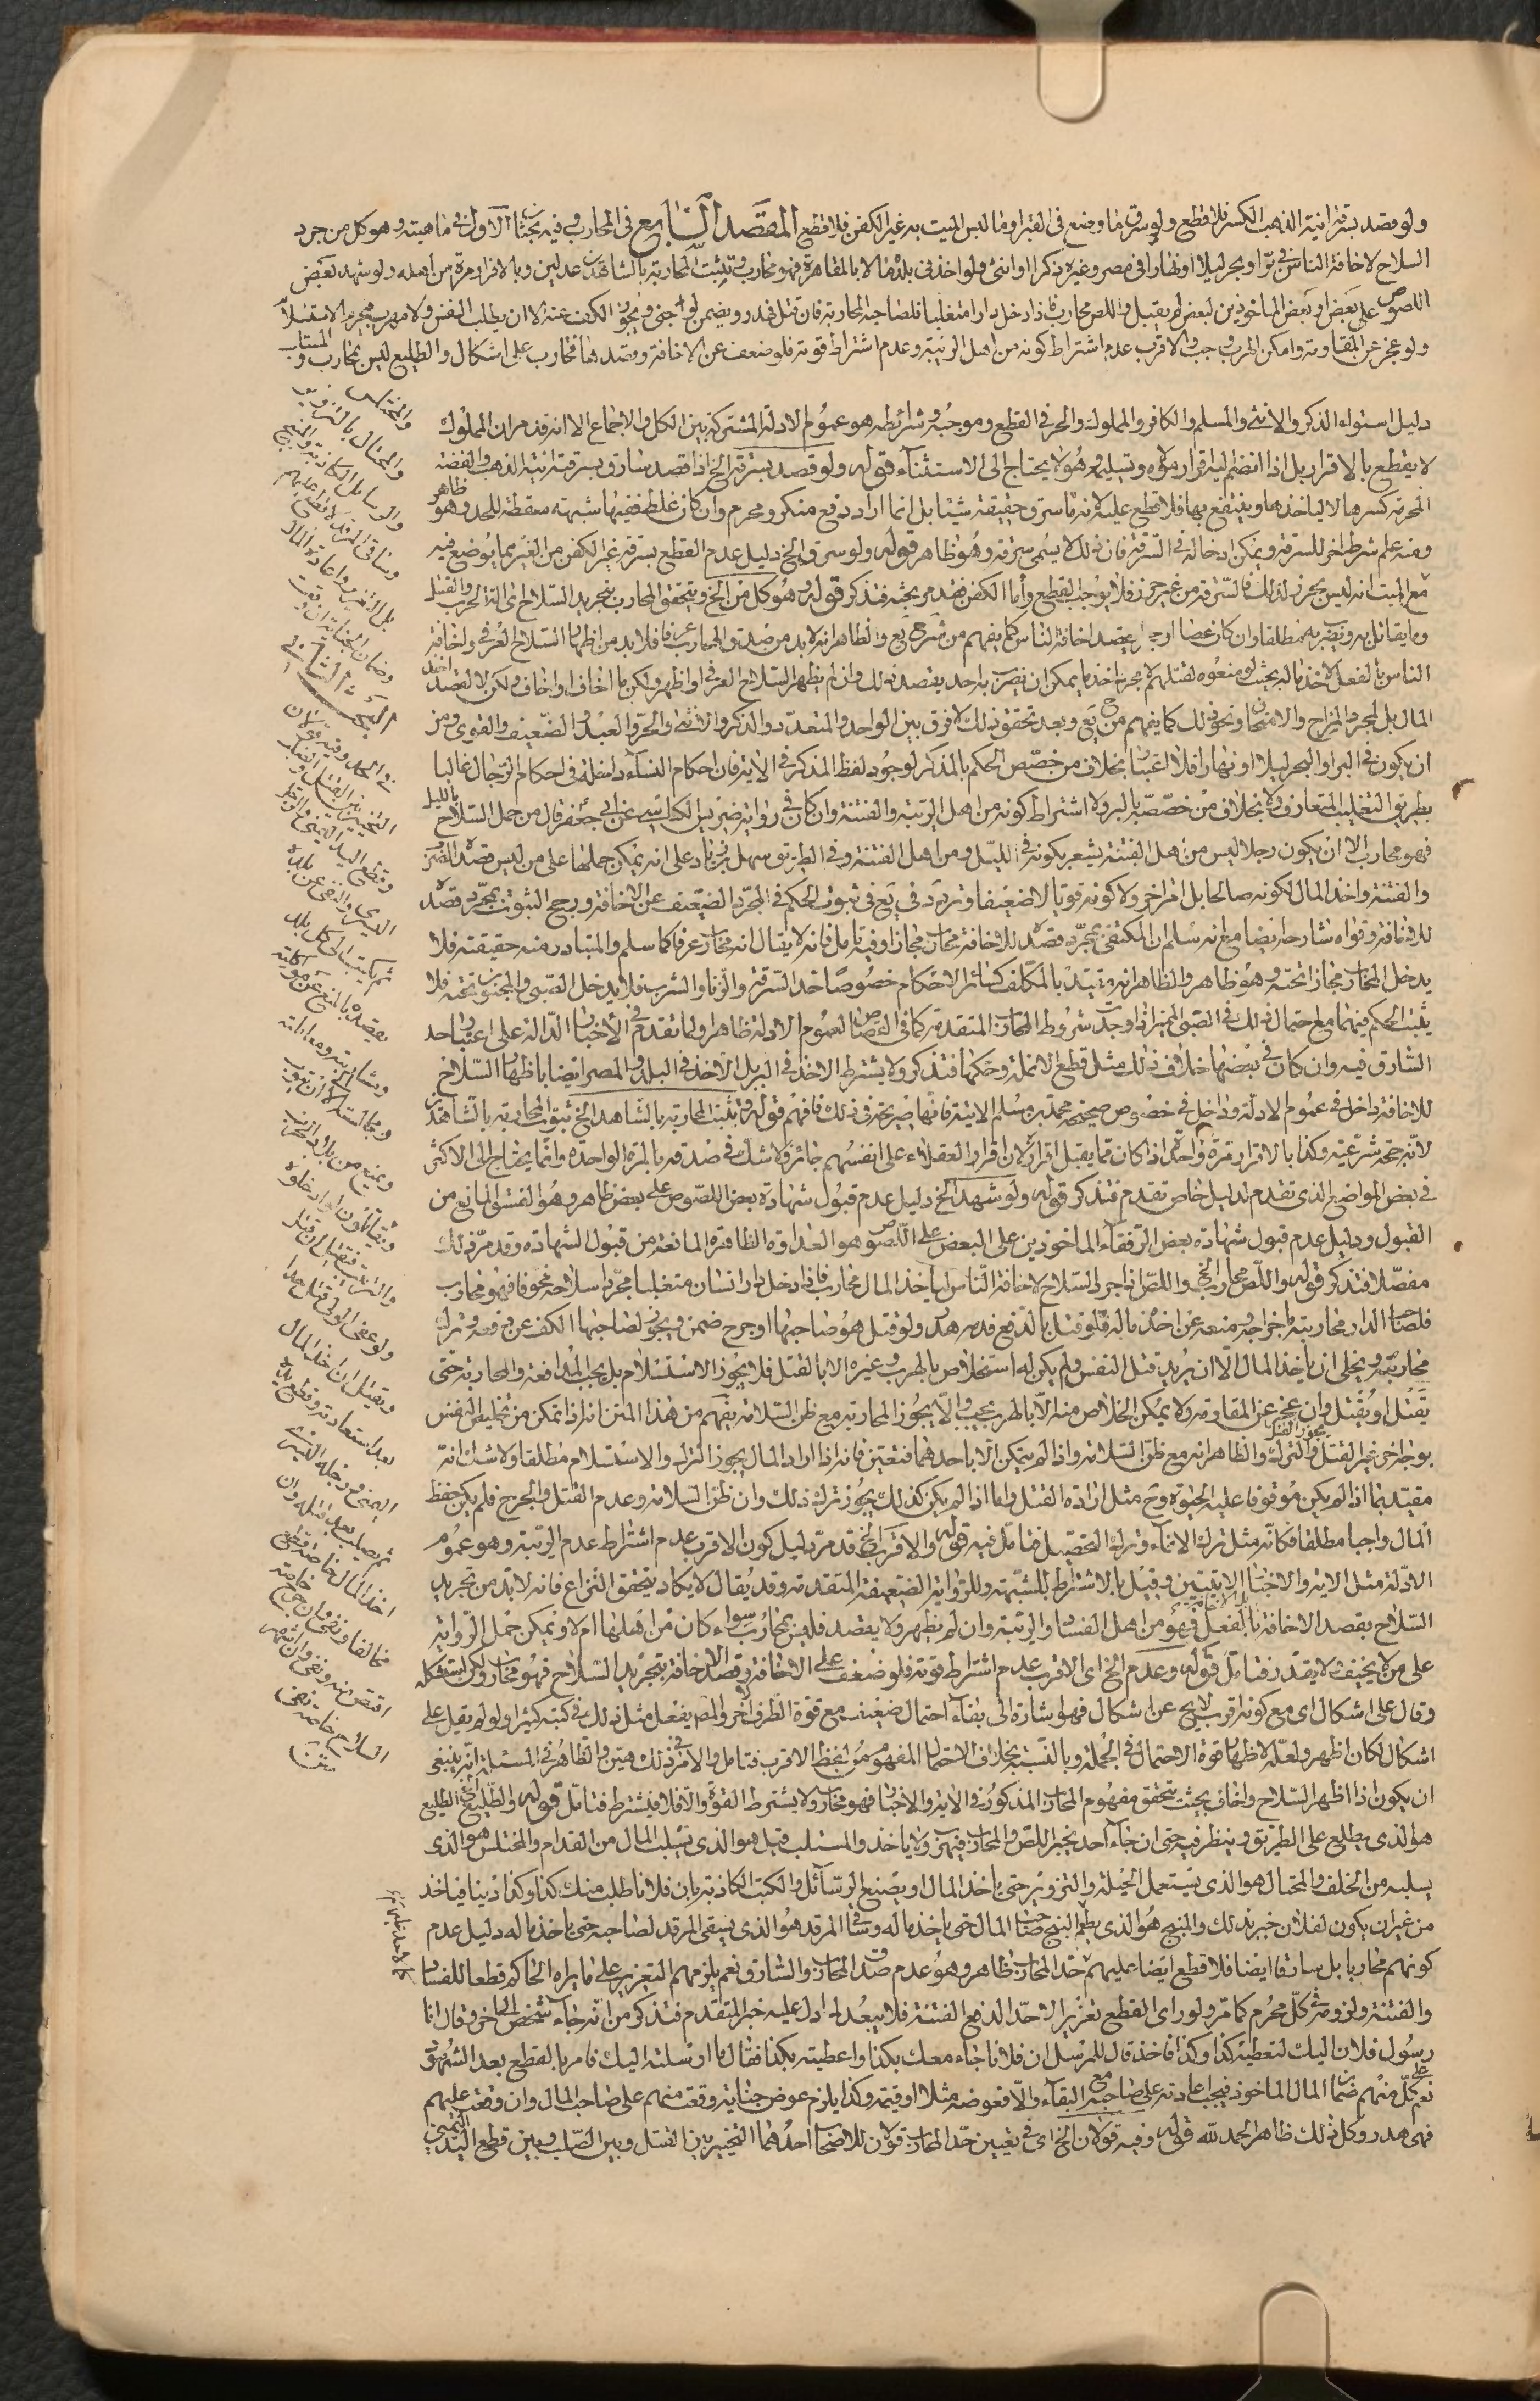 ولو قصد بسرقة انية الذهب الكسر فلا قطع ولو سرق ما وضع فى القبر او ما لبس الميت به غير الكفن فلا قطع المقصد السابع فى المحارب وفيه بحثان الاول فى ماهيته وهو كل من جرد
السلاح لاخافة الناس فى بر او بحر ليلا او نهارا فى مصر وغيره ذكرا او انثى ولو اخذ فى بلد مالا بالمقاهرة فهو محارب وتثبت المحاربة بالشاهدين عدلين وبالاقرار مرة من اهله ولو شهد بعض
اللصوص على بعض او بعض الماخوذين لبعض لم يقبل واللص محارب فاذا دخل دارا متغلبا فلصاحبه المحاربة فان قتل فهدر ويضمن لو جنى ويجوز الكف عنه الا ان يطلب النفس ولا مهرب فيحرم الاستسلام
ولو عجز عن المقاومة وامكن الهرب وجب والاقرب عدم اشتراط كونه من اهل الريبة وعدم اشتراط قوته فلو ضعف عن الاخافة وقصدها فمحارب على اشكال والطليع ليس بمحارب والمستلب
والمختلس
والمحتال بالتزوير
والرسايل الكاذبة والمبنج
وساقى المرقد لا قطع عليهم
بل التعزير واعادة المال
وضمان الجناية ان وقعت
البحث الثانى
فى الحد وفيه قولان
التخيير بين القتل والصلب
وقطع اليد اليمنى والرجل
اليسرى والنفى عن بلده
ثم يكتب الى كل بلد
يقصده بالمنع عن مواكلته
ومشاربته ومعاملته
ومجالسته الا ان يتوب
ويمنع من بلاد الشرك
ويقاتلون لو ادخلوه
والترتيب فيقتل ان قتل
ولو عفى الولى قتل حدا
ويقتل ان اخذ المال
بعد استعادته وقطع يده
اليمنى ورجله اليسرى
ثم يصلب بعد قتله وان
اخذ المال خاصة قطع
مخالفا ونفى وان جرح خاصة
اقتص منه ونفى وان شهر
السلاح خاصة نفى
متن
دليل استواء الذكر والانثى والمسلم والكافر والمملوك والحر فى القطع وموجبه وشرائطه هو عموم الادلة المشتركة بين الكل والاجماع الا انه قد مر ان المملوك
لا يقطع بالاقرار بل اذا انضم اليه اقرار مولاه وتسليمه وهو لا يحتاج الى الاستثناء قوله ولو قصد بسرقة الخ اذا قصد سارق بسرقة انية الذهب والفضة
المحرمة كسرها لا لياخذها وينتفع بها فلا قطع عليه لانه ما سرق حقيقة شيئا بل انما اراد دفع منكر ومحرم وان كان غلط ففيها شبهة مسقطة للحد وهو ظاهر
ومنه علم شرط اخر للسرقة ويمكن ادخاله فى السرقة فان ذلك لا يسمى سرقة وهو ظاهر قوله ولو سرق الخ دليل عدم القطع بسرقة غير الكفن من القبر مما يوضع فيه
مع الميت انه ليس بحرز لذلك فالسرقة من غير حرز فلا يوجب القطع واما الكفن فقد مر بحثه فتذكر قوله وهو كل من الخ ويتحقق المحارب بتجريد السلاح اى الة الحرب والقتل
وما يقاتل به ويضرب به مطلقا وان كان عصا او حجرا بقصد اخافة الناس كما يفهم من شرح يع والظاهر انه لا بد من ضد والمحارب عرفا فلا بد من اظهار السلاح العرفى واخافة
الناس بالفعل لاخذ ماله بحيث لو منعوه لقتلهم لا مجرد اخذ ما يمكن ان يضرب به احد بقصد ذلك وان لم يظهر السلاح العرفى او اظهر ولكن ما اخاف او اخاف ولكن لا لقصد اخذ
المال بل لمجرد المزاح والامتحان ونحو ذلك كما يفهم من ح يع وبعد تحقق ذلك لا فرق بين الواحد والمتعدد والذكر والانثى والحر والعبد والضعيف والقوى ومن
ان يكون فى البر او البحر ليلا او نهارا فلا اعتبار بخلاف من خصص الحكم بالمذكر لوجود لفظ المذكر فى الاية فان احكام النساء داخلة فى احكام الرجال غالبا
بطريق التغليب المتعارف ولا بخلاف من خصصه بالبر ولا اشتراط كونه من اهل الريبة والفتنة وان كان فى رواية ضريس الكناسى عن ابى جعفر قال من حمل السلاح بالليل
فهو محارب الا ان يكون رجلا ليس من اهل الفتنة يشعر بكونه فى الليل ومن اهل الفتنة وفى الطريق سهل بن زياد على انه يمكن حملها على من ليس قصده الضرر
والفتنة واخذ المال لكونه صالحا بل امر اخر ولا كونه قويا لا ضعيفا وتردد فى يع فى ثبوت الحكم فى المجرد الضعيف عن الاخافة ورجح الثبوت بمجرد قصده
للاخافة وقواه شارحه ايضا مع انه سلم ان المكتفى بمجرد قصده للاخافة محارب مجازا وفيه تامل فانه لا يقال انه محارب عرفا كما سلم والمتبادر منه حقيقته فلا
يدخل المحارب مجازا تحته وهو ظاهر والظاهر انه مقيد بالمكلف كسائر الاحكام خصوصا حد السرقة والزنا والشرب فلا يدخل الصبى والمجنون تحته فلا
يثبت الحكم فيهما مع احتمال ذلك فى الصبى المميز اذا وجدت شروط المحارب المتقدمة كما فى القصاص لعموم الادلة ظاهرا ولما تقدم فى الاخبار الدالة على اعتبار حد
السارق فيه وان كان فى بعضها خلاف ذلك مثل قطع الانملة وحكها فتذكر ولا يشترط الاخذ فى البر بل الاخذ فى البلد والمصر ايضا باظهار السلاح
للاخافة داخل فى عموم الادلة وداخل فى خصوص صحيحة محمد بن مسلم الاتية فانها صريحة فى ذلك فافهم قوله وتثبت المحاربة بالشاهد الخ ثبوت المحاربة بالشاهدين
لانه حجة شرعية وكذا بالاقرار مرة واحدة اذا كان مما يقبل اقراره لان اقرار العقلاء على انفسهم جائز ولا شك فى صدقه بالمرة الواحدة وانما يحتاج الى الاكثر
فى بعض المواضع الذى تقدم لدليل خاص تقدم فتذكر قوله ولو شهد الخ دليل عدم قبول شهادة بعض اللصوص على بعض ظاهر وهو الفسق المانع من
القبول ودليل عدم قبول شهادة بعض الرفقاء الماخوذين على البعض على اللصوص هو العداوة الظاهرة المانعة من قبول الشهادة وقد مر ذلك
مفصلا فتذكر قوله واللص محارب الخ واللص اذا جرد السلاح لاخافة الناس لياخذ المال محارب فاذا دخل دار انسان متغلبا مجردا سلاحه نحوه فهو محارب
فلصاحب الدار محاربته واخراجه ومنعه عن اخذ ماله فلو قتل بالدفع فدمه هدر ولو قتل هو صاحبها او جرح ضمن ويجوز لصاحبها الكف عن دفعه وترك
محاربته ويخلى ان ياخذ المال الا ان يريد قتل النفس ولم يكن له استخلاص بالهرب وغيره الا بالقتل فلا يجوز الاستسلام بل يجب المدافعة والمحاربة حتى
يقتل او يقتل وان عجز عن المقاومة ولا يمكن الخلاص منه الا بالهرب يجب ولا يجوز المحاربة مع ظن السلامة يفهم من هذا المتن انه اذا تمكن من تخليص النفس
بوجه اخر غير القتل يجوز القتل والترك والظاهر انه مع ظن السلامة واذا لم يتمكن الا باحدهما فتعين فانه اذا اراد المال يجوز الترك والاستسلام مطلقا ولا شك انه
مقيد بما اذا لم يكن موقوفا عليه الحيوة وح مثل ارادة القتل واما اذا لم يكن كذلك يجوز ترك ذلك وان ظن السلامة وعدم القتل والجرح فلم يكن حفظ
المال واجبا مطلقا فكانه مثل ترك الانماء وترك التحصيل فتامل فيه قوله والاقرب الخ قد مر دليل كون الاقرب عدم اشتراط عدم الريبة وهو عموم
الادلة مثل الاية والاخبار الاتيتين وقيل بالاشتراط للشبهة وللرواية الضعيفة المتقدمة وقد يقال لا يكاد يتحقق النزاع فانه لا بد من تجريد
السلاح بقصد الاخافة بالفعل فهو من اهل الفساد والريبة وان لم يظهر ولا يقصد فليس بمحارب سواء كان من اهلها ام لا ويمكن حمل الرواية
على من لا يخيف ولا يقدر فتامل قوله وعدم الخ اى الاقرب عدم اشتراط قوته فلو ضعف على الاخافة وقصد الاخافة بتجريد السلاح فهو محارب ولكن استشكله
وقال على اشكال اى مع كونه اقرب لا يخ عن اشكال فهو اشارة الى بقاء احتمال ضعيف مع قوة الطرف الاخر والمص يفعل مثل ذلك فى كتبه كثيرا ولو لم يقل على
اشكال لكان اظهر ولعله لاظهار قوة الاحتمال فى الجملة وبالنسبة بخلاف الاحتمال المفهوم من لفظ الاقرب فتامل والامر فى ذلك هين والظاهر فى المسئلة انه ينبغى
ان يكون اذا اظهر السلاح واخاف بحيث تحقق مفهوم المحارب المذكور فى الاية والاخبار فهو محارب ولا يشترط القوة والا فلا فيشترط فتامل قوله والطليع الخ الطليع
هو الذى يطلع على الطريق وينظر فيه حتى ان جاء احد يخبر اللص والمحارب فيهرب ولا ياخذ والمستلب قيل هو الذى يسلب المال من القدام والمختلس هو الذى
يسلبه من الخلف والمحتال هو الذى يستعمل الحيلة والتزوير حتى ياخذ المال او يصنع الرسائل والكتب الكاذبة بان فلانا طلب منك كذا وكذا دينا فياخذ
من غير ان يكون لفلان خبر بذلك والمبنج هو الذى يطعم البنج صاحب المال حتى ياخذ ماله وساقى المرقد هو الذى يسقى المرقد لصاحبه حتى ياخذ ماله دليل عدم
كونهم محاربا بل سارقا ايضا فلا قطع ايضا عليهم حد المحارب ظاهر وهو عدم صدق المحارب والسارق نعم يلزمهم التعزير على ما يراه الحاكم قطعا للفساد
والفتنة ولزومه فى كل محرم كما مر ولو راى القطع تعزيرا لا حدا لدفع الفتنة فلا يبعد لما دل عليه خبر المتقدم فتذكر من انه جاء شخص الى اخر وقال انا
رسول فلان اليك لتعطيه كذا وكذا فاخذ قال للمرسل ان فلانا جاء معك بكذا واعطيته بكذا فقال ما ارسلته اليك فامر بالقطع بعد الشهود
نعم على كل منهم ضمان المال الماخوذ فيجب اعادته على صاحبه مع البقاء والا فعوضه مثلا او قيمة وكذا يلزم عوض جناية وقعت منهم على صاحب المال وان وقعت عليهم
فهى هدر وكل ذلك ظاهر الحمد لله قوله وفيه قولان الخ اى فى تعيين حد المحارب قولان للاصحاب احدهما التخيير بين القتل وبين الصلب وبين قطع اليد اليمنى